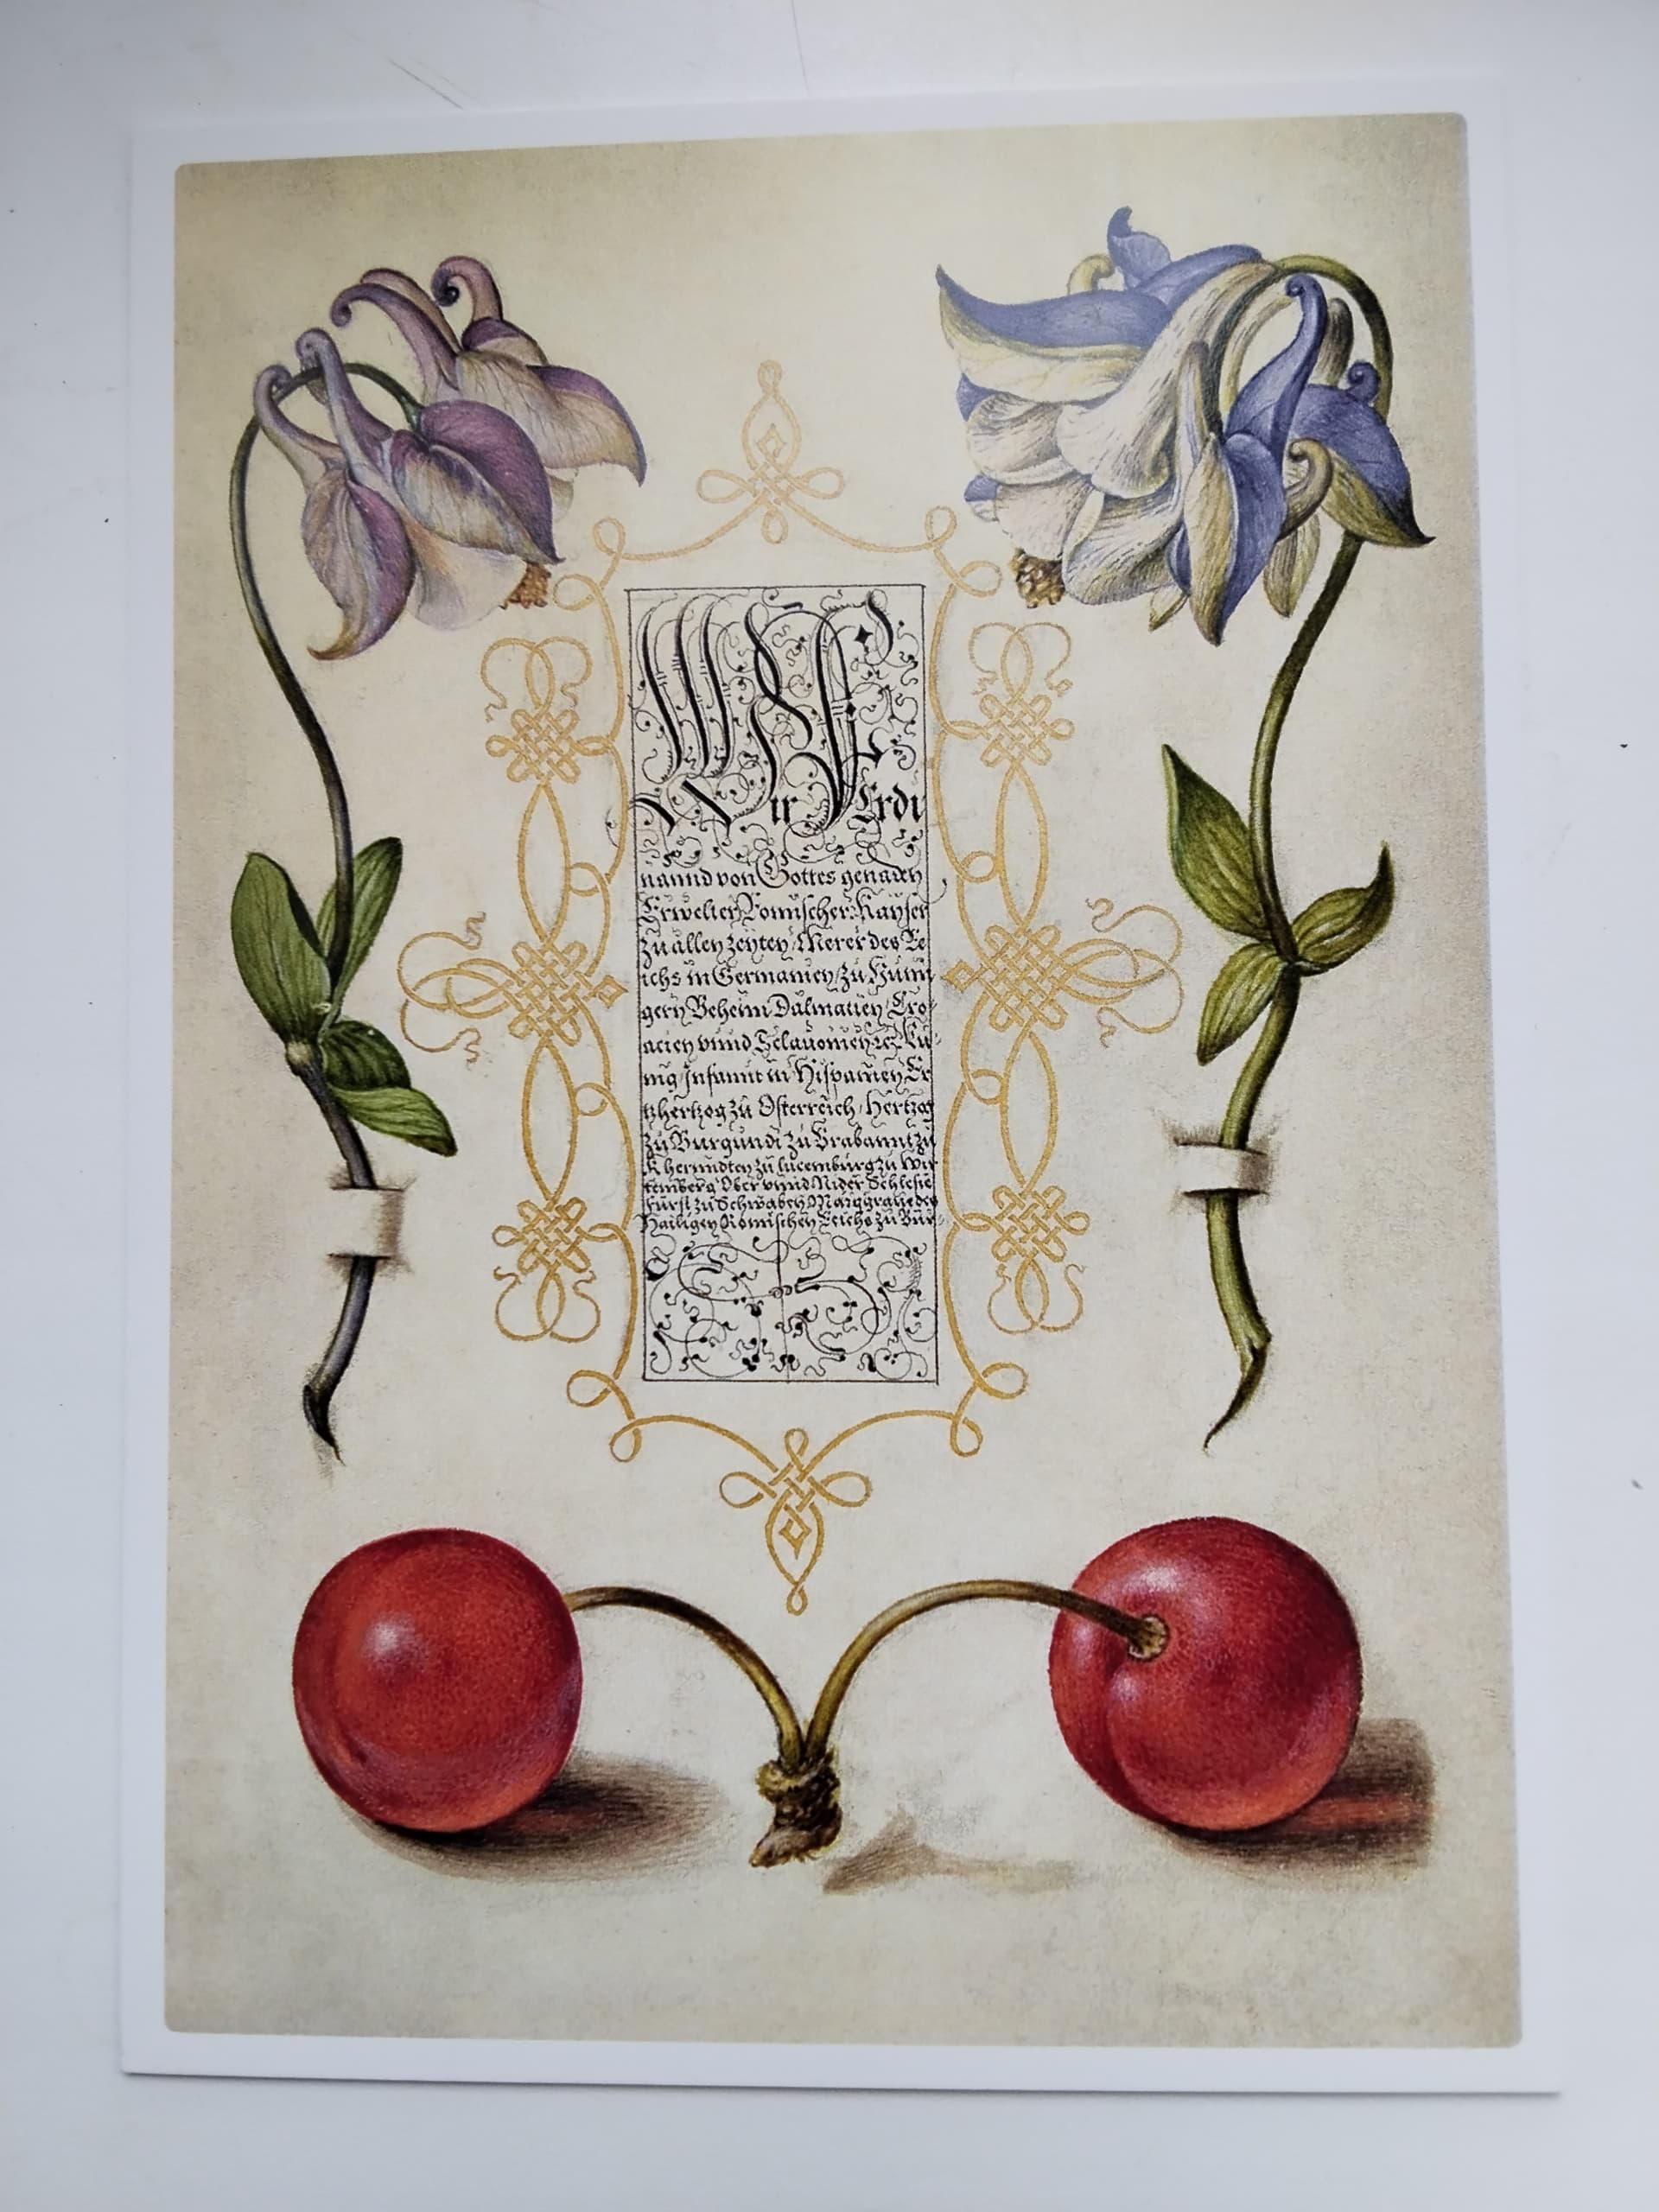 Wir Ferdi
nannd von Gottes genaden
Erwelter Romischer Kayser
zu allen zeyten Merer des Re
ichs in Germanien, zu Hunn
gern Beheim Dalmatien, Cro-
acien vnnd Sclauonien ec Ku-
nig, Infannt in Hispanien Er
tzhertzog zu Osterreich, Hertzog
zu Burgundi zu Brabannt zu
Khernndten zu lucemburg zu Wir
temberg Ober vnnd Nider Schlesie
Furst zu Schwaben Marggraue des
Hailigen Romischen Reichs zu Bur-